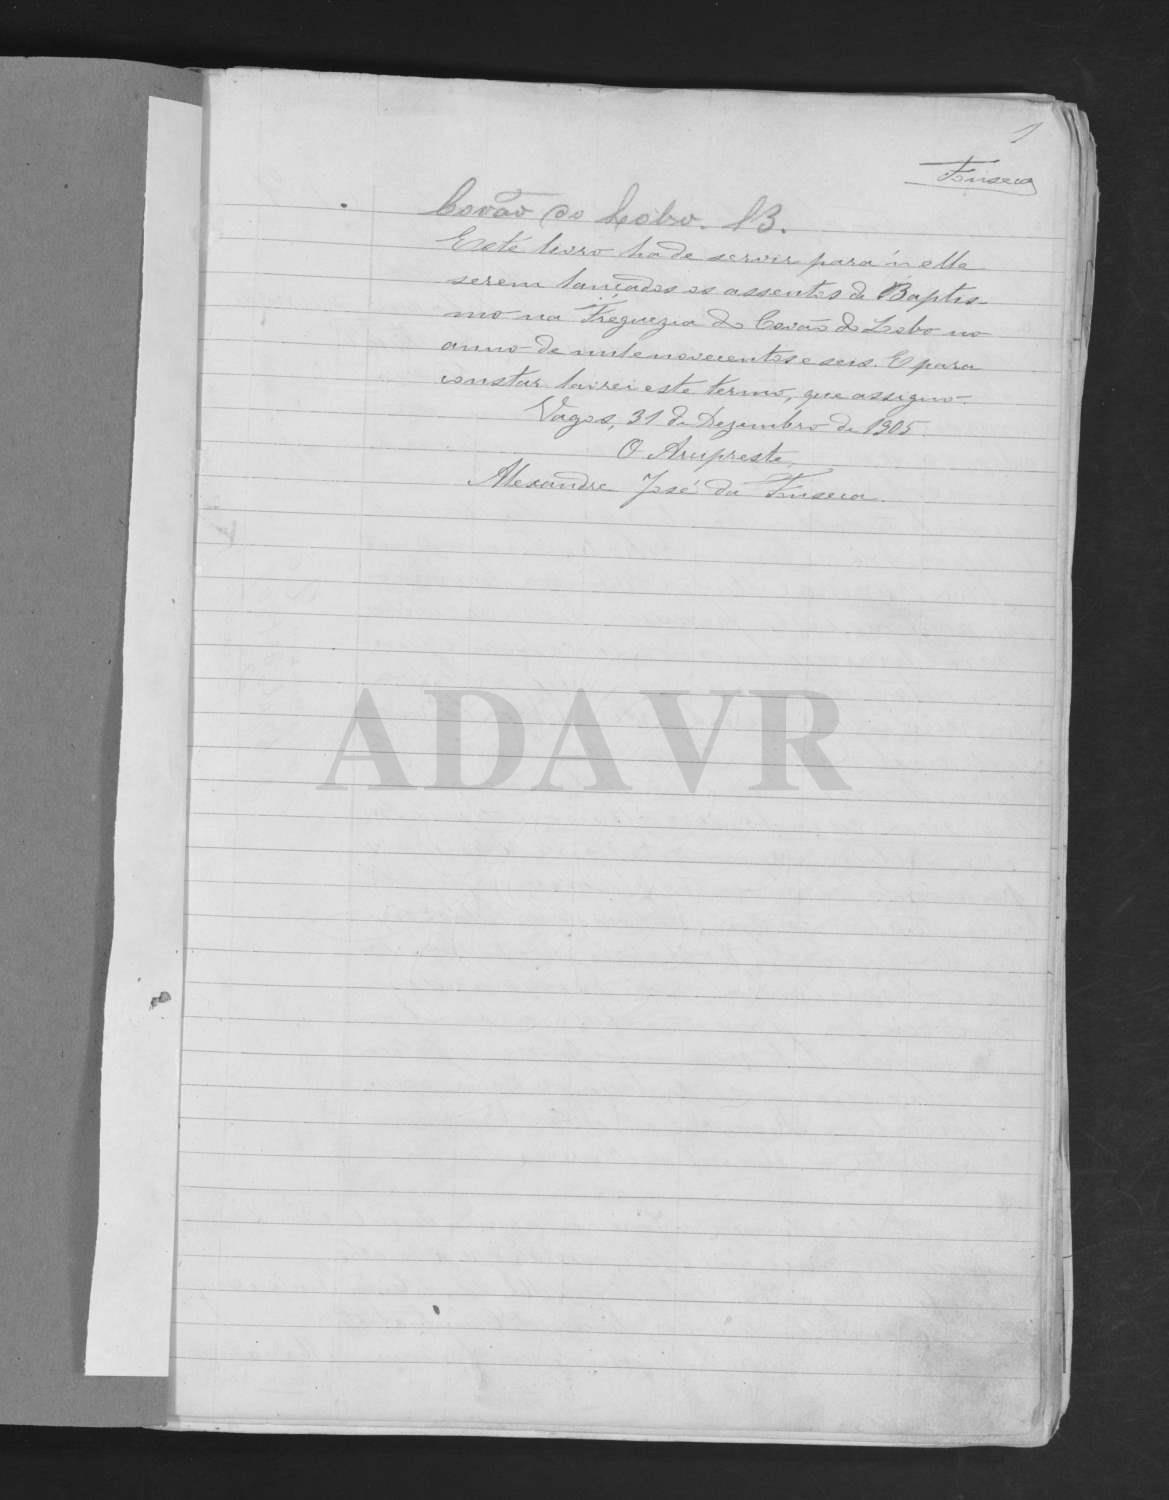 1
Fonseca
Covão do Lobo. B.
Este livro hade servir para n'elle
serem lançados os assentos de Baptis-
mo na Freguezia do Covão do Lobo no
anno de mil e novecentos e seis. E para
constar lavrei este termo, que assigno.
Vagos, 31 de Dezembro de 1905.
O Arcipreste,
Alexandre José da Fonseca.
ADAVR